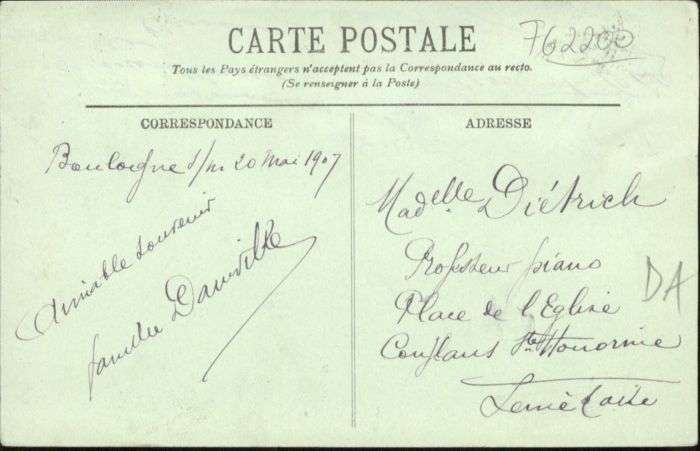 CARTE POSTALE
762200
Tous les Pays étrangers n'acceptent pas la Correspondance au recto.
(Se renseigner à la Poste)
CORRESPONDANCE
Boulogne s/m 20 Mai 1907
Aimable souvenir
famille
ADRESSE
Madelle Diétrich
Professeur piano
Place de l'Eglise
Conflans Ste Honorine
DA